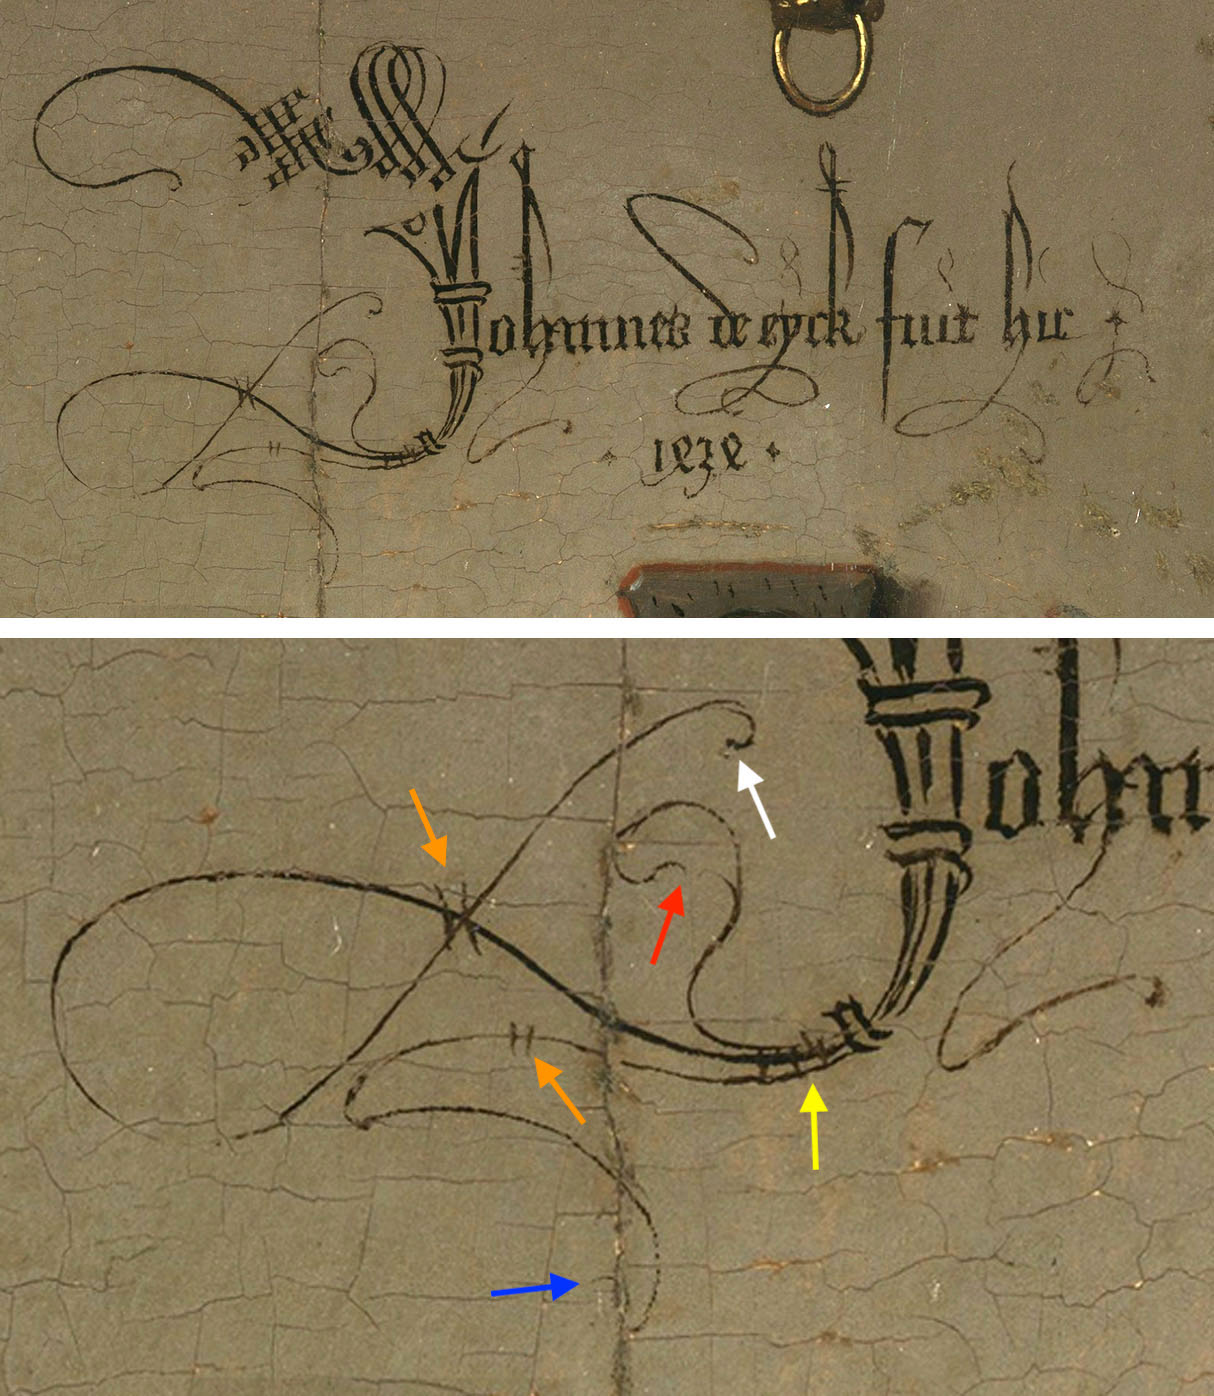 Johannes de eyck fuit hic
1434
Johan